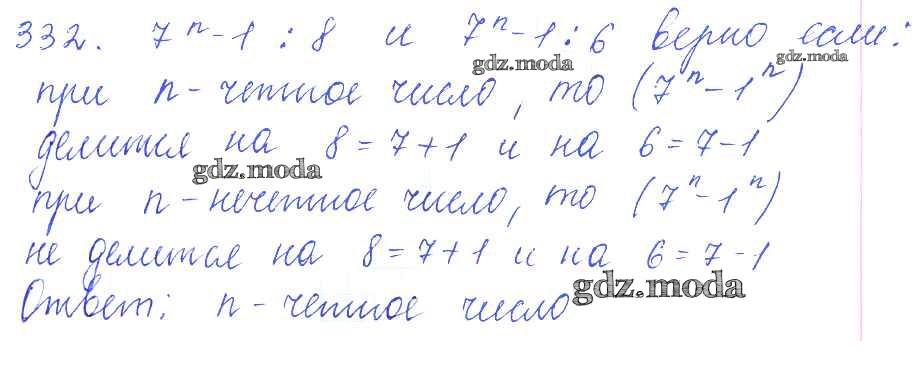 332. 7ⁿ-1 ⋮ 8 и 7ⁿ-1 ⋮ 6 верно если:
gdz.moda gdz.moda
при n-четное число, то (7ⁿ-1ⁿ)
делится на 8=7+1 и на 6=7-1
gdz.moda
при n-нечетное число, то (7ⁿ-1ⁿ)
не делится на 8=7+1 и на 6=7-1
Ответ: n-четное число
gdz.moda